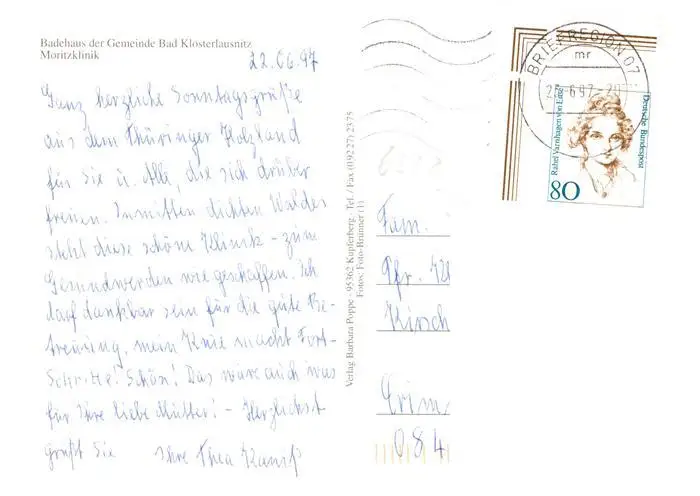 Badehaus der Gemeinde Bad Klosterlausnitz
Moritzklinik
22.06.97
Ganz herzliche Sonntagsgrüße
aus dem Thüringer Holzland
für Sie u. Alle, die sich drüber
freuen. Inmitten dichten Waldes
steht diese schöne Klinik - zum
Gesundwerden wie geschaffen. Ich
darf dankbar sein für die gute Be-
treuung, mein Knie macht Fort-
schritte! Schön! Das wäre auch was
für Ihre liebe Mutter! - Herzlichst
grüßt Sie Ihre Thea
Verlag Barbara Poppe - 95362 Kupferberg - Tel. / Fax (092 27) 23 75
Fotos: Foto-Brünner (1)
BRIEFREGION 07
mr
Rahel Varnhagen von Ense
Deutsche Bundespost
80
Fam.
Pfr.
Kirsch
Crim
084